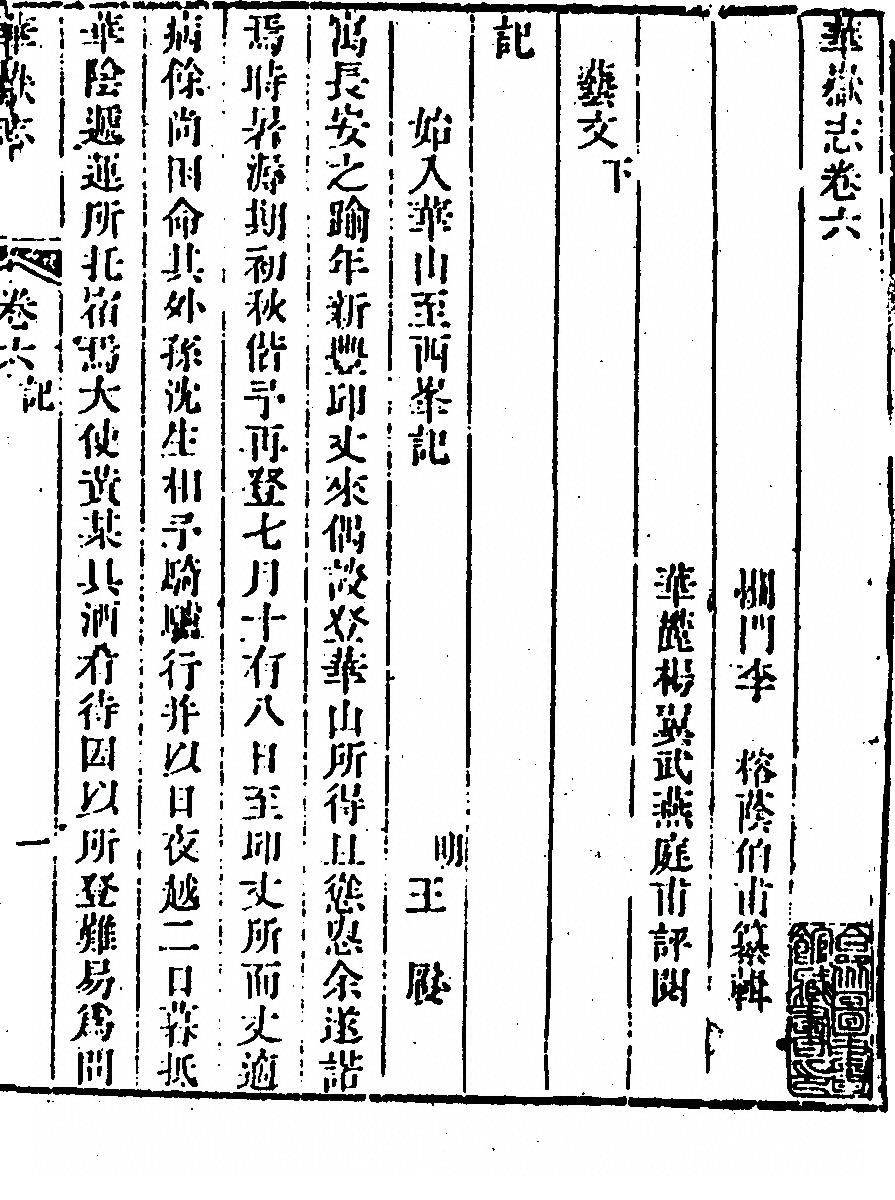 華嶽志卷六
憪門李　榕蔭伯甫纂輯
華麓楊翼武燕庭甫評閱
藝文下
記
始入華山至西峯記　明王履
寓長安之踰年新豐邱丈來偶談登華山所得且慫恿余遂諾
焉時暑溽期初秋偕予再登七月十有八日至邱丈所而丈適
病餘尚困命其外孫沈生相予騎驢行并以日夜越二日暮抵
華陰遞運所北宿焉大使黃某具酒殽待因以所登難易爲問
華嶽志
卷六
記
一